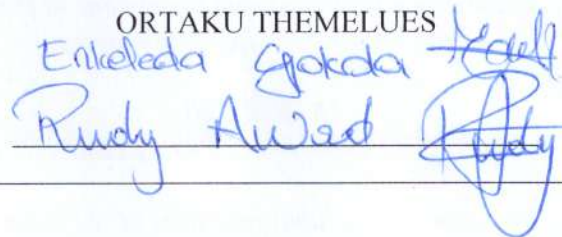 ORTAKU THEMELUES
Enkeleda Gjokola
Rudy Awad Rudy